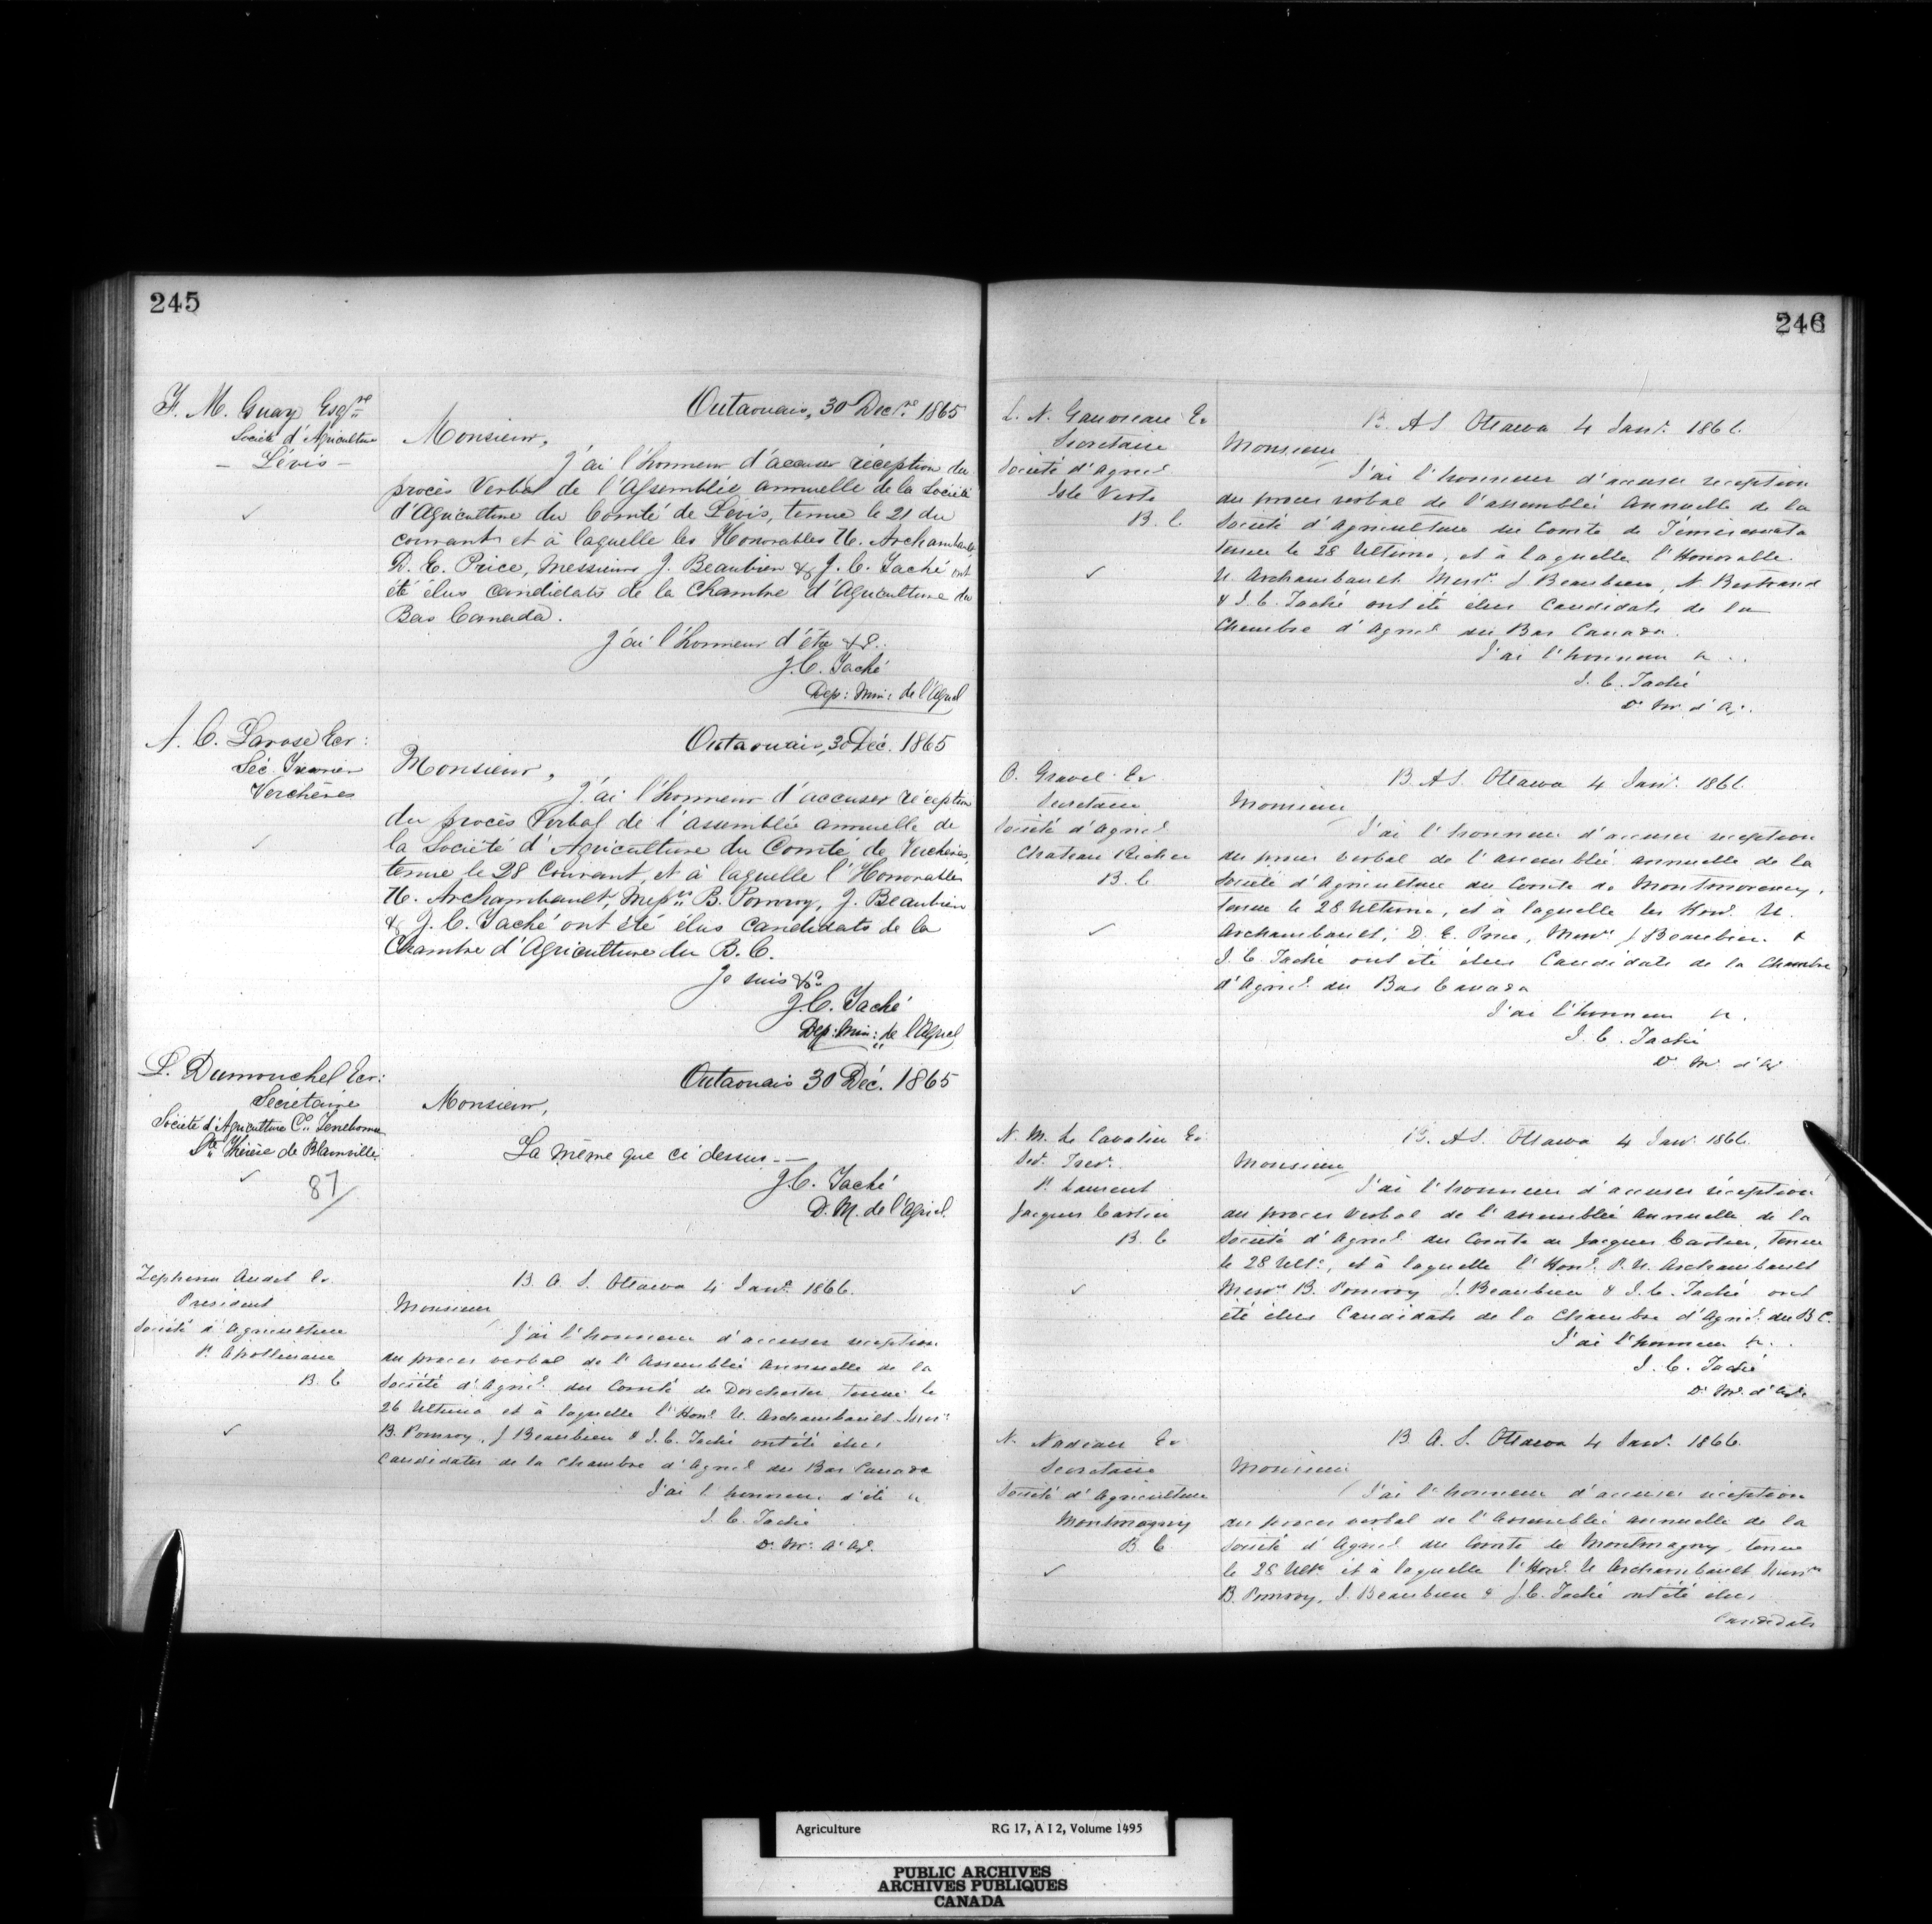 245
F. M. Guay Esqre
Société d'Agriculture
- Lévis -
Outaouais, 30 Decre 1865
Monsieur,
J'ai l'honneur d'accuser réception du
procès Verbal de l'Assemblée annuelle de la Société
d'Agriculture du Comté de Lévis, tenue le 21 du
courant et à laquelle les Honorables U. Archambault,
D. E. Price, Messieurs J. Beaubien & J. C. Taché ont
été élus candidats de la Chambre d'Agriculture du
Bas Canada.
J'ai l'honneur d'être &c.
J. C. Taché
Dep: Min: de l'Agricl
A. C. Larose Ecr:
Séc. Trésorier
Verchères
Outaouais, 30 Déc. 1865
Monsieur,
J'ai l'honneur d'accuser réception
du procès Verbal de l'asemblée annuelle de
la Société d'Agriculture du Comté de Verchères,
tenue le 28 Courant, et à laquelle l'Honorables
U. Archambault, Messrs B. Pomroy, J. Beaubien
& J. C. Taché ont été élus candidats de la
Chambre d'Agriculture du B. C.
Je suis &c
J. C. Taché
Dep: Min: de l'Agricl
L. Dumouchel Ecr:
Sécrétaire
Société d'Agriculture Co. Terrebonne
Ste Thérèse de Blainville
87
Outaouais 30 Déc. 1865
Monsieur,
La même que ci dessus --
J. C. Taché
D. M. de l'Agricl.
Zephirin Audet Er
President
Société d'Agriculture
St Apollinaire
B. C
B. A. S. Ottawa 4 Janr 1866.
Monsieur
J'ai l'honneur d'accuser reception
du proces verbal de l'Assemblée annuelle de la
Société d'Agricl. du Comté de Dorchester tenue le
26 Ultimo et à laquelle l'Honl U. Archambault Messrs
B. Pomroy, J Beaubien & J. C. Taché ont été élus
candidats de la Chambre d'Agricl du Bas Canada
J'ai l'honneur d'etê &
J. C. Taché
D. Mr. d'Ag.
246
L. N. Gauvreau Er
Secretaire
Société d'Agricl
Isle Verte
B. C
B. A S Ottawa 4 Janr. 1866.
Monsieur
J'ai l'honneur d'accuser reception
du proces verbal de l'assemblée Annuelle de la
Société d'Agriculture du Comte de Témiscouata
tenue le 28 Ultimo, et à laquelle l'Honorable
U. Archambault Messrs. J Beaubien, N. Bertrand
& J. C. Taché ont été élus Candidats de la
Chambre d'Agricl du Bas Canada.
J'ai l'honneur &..
J. C. Taché
D. Mr. d'Ag.
C. Gravel Er
Secretaire
Société d'Agricl
Chateau Richer
B. C
B. A S. Ottawa 4 Janr. 1866.
Monsieur
J'ai l'honneur d'accuser reception
du proces verbal de l'assemblée annuelle de la
Société d'Agriculture du Comté de Montmorency,
tenue le 28 Ultimo, et à laquelle les Honl. U.
Archambault, D. E. Price, Messrs J Beaubien &
J. C. Taché ont été élus Candidats de la Chambre
d'Agricl. du Bas Canada
J'ai l'honneur &.
J. C. Taché
D. M. d'Ag
N. M. Le Cavalier Er
Secr. Tresr.
St. Laurent
Jacques Cartier
B. C
B. A S. Ottawa 4 Janr 1866.
Monsieur
J'ai l'honneur d'accuser réception
du proces verbal de l'assemblée annuelle de la
Société d'Agricl. du Comte de Jacques Cartier, tenue
le 28 Ulto, et à laquelle l'Honl. P. U. Archambault
Messrs B. Pomroy J. Beaubien & J. C. Taché ont
été élus Candidats de la Chambre d'Agricl. du B C.
J'ai l'honneur &..
J. C. Taché
D. Mr. d'Ag
N. Nadeau Er
Secretaire
Société d'Agriculture
Montmagny
B. C
B. A. S. Ottawa 4 Janr. 1866.
Monsieur
J'ai l'honneur d'accuser reception
du proces verbal de l'Assemblée annuelle de la
Société d'Agricl du Comte de Montmagny, tenue
le 28 Ulto et à laquelle l'Honl. U Archambault Messrs
B. Pomroy, J. Beaubien & J. C. Taché ont été élus
Candidats
Agriculture RG 17, A I 2, Volume 1495
PUBLIC ARCHIVES
ARCHIVES PUBLIQUES
CANADA